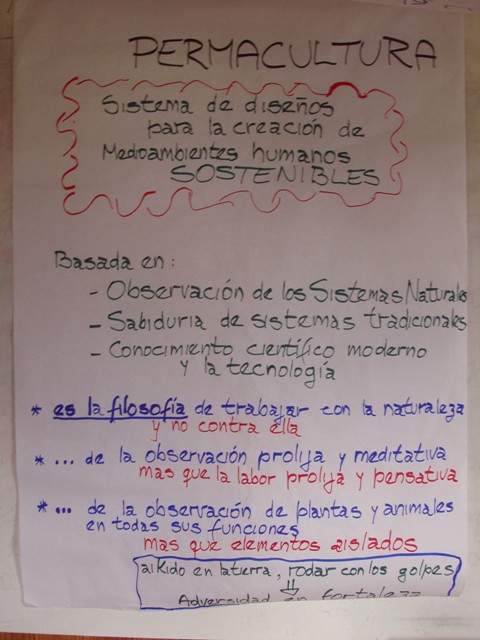 PERMACULTURA
Sistema de diseños
para la creación de
Medioambientes humanos
SOSTENIBLES
Basada en:
- Observación de los Sistemas Naturales
- Sabiduria de sistemas tradicionales
- Conocimiento científico moderno
y la tecnología
* es la filosofía de trabajar con la naturaleza
y no contra ella
* ... de la observación prolija y meditativa
mas que la labor prolija y pensativa
* ... de la observación de plantas y animales
en todas sus funciones
mas que elementos aislados
aikido en la tierra, rodar con los golpes
⇓
Adversidad en fortaleza